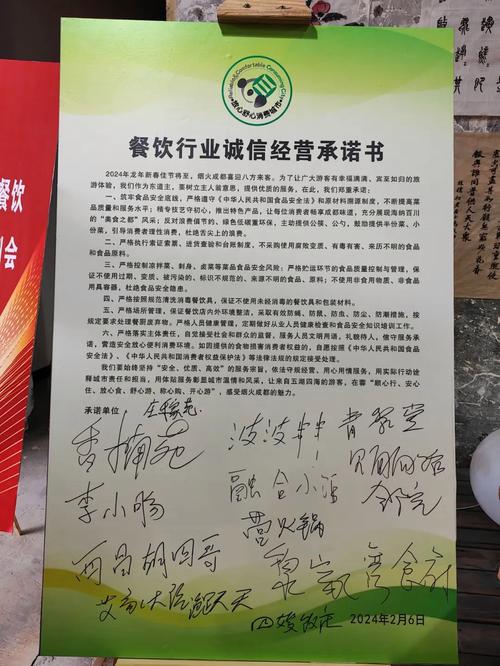 Reliable&Comfortable Consuming City
放心舒心消费城市
餐饮行业诚信经营承诺书
2024年龙年新春佳节将至，烟火成都喜迎八方来客。为了让广大游客有幸福满满、宾至如归的旅
游体验，我们作为东道主，要树立主人翁意思，提供优质的服务。在此，我们郑重承诺：
一、筑牢食品安全底线，严格遵守《中华人民共和国食品安全法》和原材料溯源制度，不断提高菜
品质量和服务水平；精专技艺守初心，推出特色产品，让每位消费者畅享成都味道，充分展现海纳百川
的“美食之都”风采；反对浪费倡节约，绿色低碳重环保，主动提供公筷、公勺，鼓励提供半份菜、小
份菜，引导消费者理性消费，杜绝舌尖上的浪费。
二、严格执行索证索票、进货查验和台账制度，不采购使用腐败变质、有毒有害、来历不明的食品
和食品原料。
三、严格控制凉拌菜、刺身、卤菜等菜品食品安全风险；严格贮运环节的食品质量控制与管理，保
证不使用过期、变质、被污染的、标识不规范的、来源不明的食品、原料；不使用非食自用物质、非食
品用具容器，杜绝食品安全隐患。
四、严格按照规范清洗消毒餐饮具，保证不使用未经消毒的餐饮具和包装材料。
五、严格场所管理，保证餐饮店内外环境整洁，采取有效防蝇、防鼠、防虫、防尘、防潮措施，按
规定要求处理餐厨废弃物。严格人员健康管理，定期做好从业人员健康检查和食品安全知识培训工作。
六、严格落实主体责任，自觉接受社会和群众的监督，服务人员文明用语、礼貌待人，信守服务承
诺，营造安全放心便利消费环境。如因提供的食物损害消费者权益的，自愿按照《中华人民共和国食品
安全法》、《中华人民共和国消费者权益保护法》等法律法规的规定接受处理。
我们要始终坚持“安全、优质、高效”的服务来旨，依法守规经营、用心用情服务，用实际行动诠
释城市责任和担当，用体贴服务彰显城市温情和风采，让来自五湖四海的游客，在蓉“顺心行、安心
住、放心食、舒心游、称心购、开心游”，感受烟火成都的魅力。
承诺单位：
香楠苑
波波串串
李小旸
融合小酒
营火锅
西昌胡同哥
2024年2月6日
餐饮
会